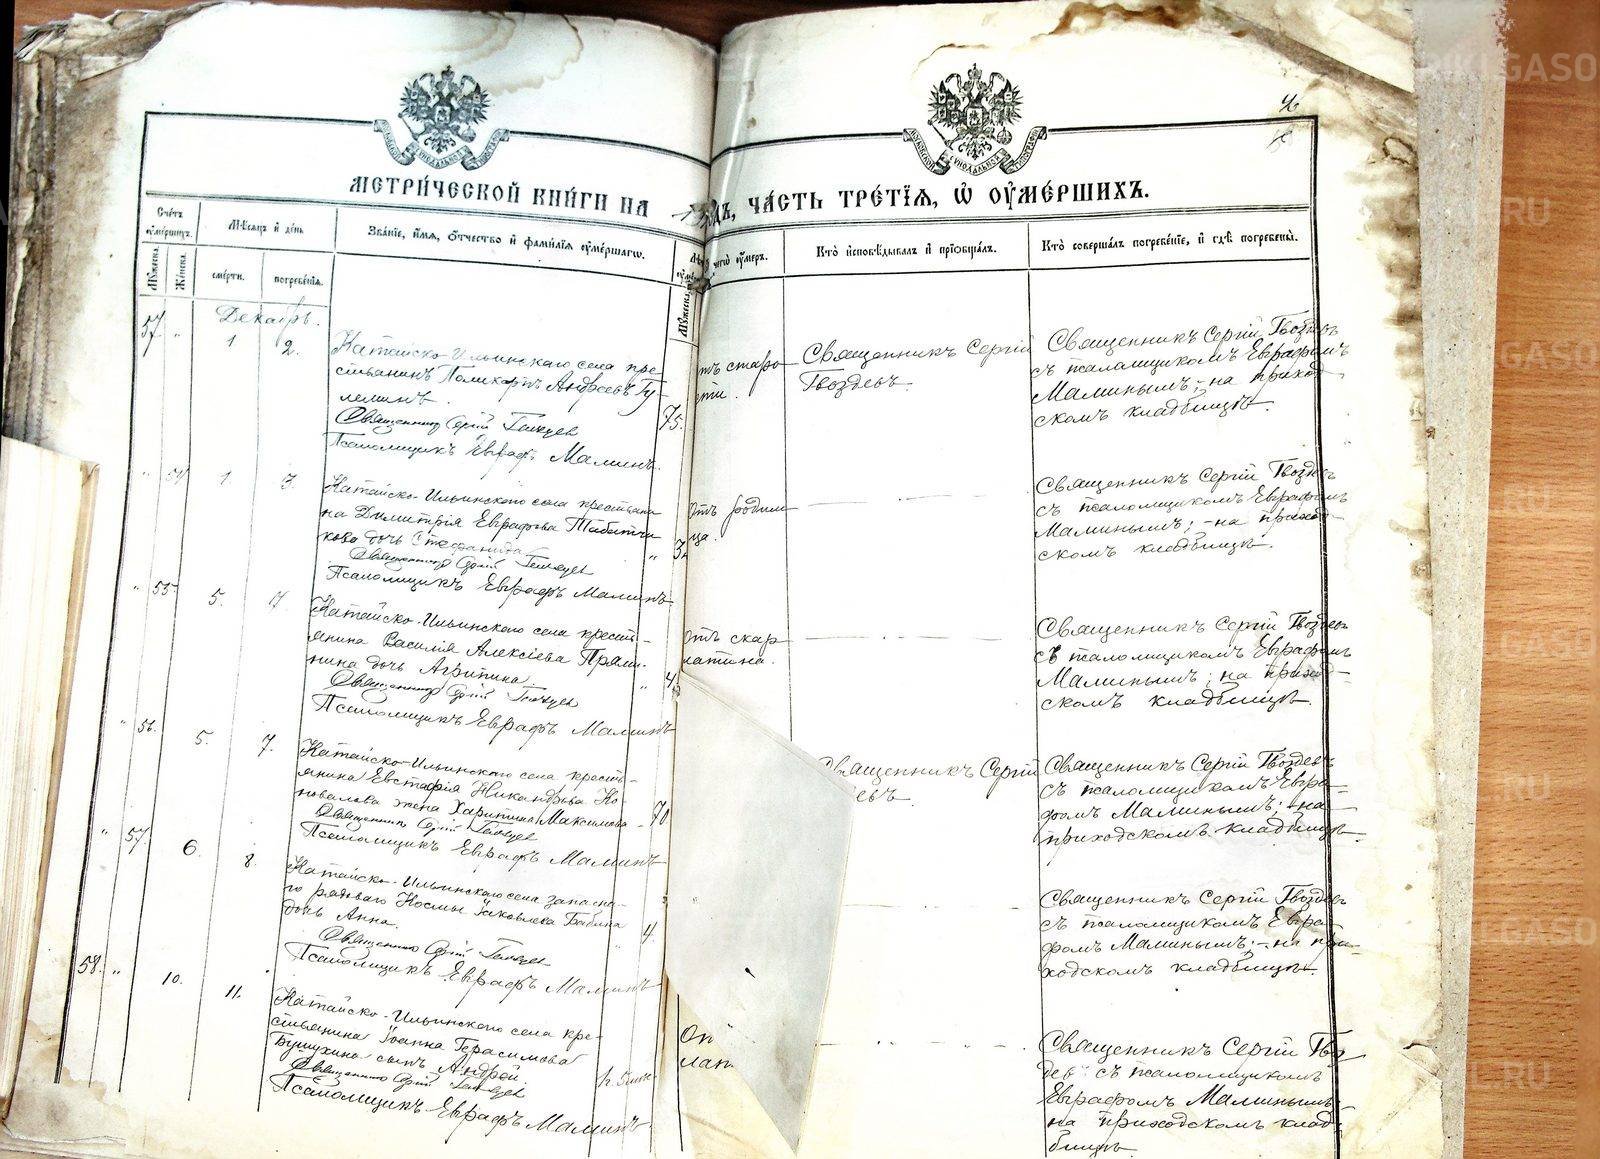 МЕТРИ́ЧЕСКОЙ КНИ́ГИ НА
ДЪ, ЧА́СТЬ ТРЕ́ТЇѦ, Ѽ ОУМЕ́РШИХЪ.
Счетъ оумершихъ.
Мужеска.
Женска.
Мѣсяцъ и день
смерти.
погребенія.
Званіе, имя, отчество и фамилія оумершагѡ.
Мужеска.
чегѡ оумеръ.
Ктѡ исповѣдывалъ и пріобщалъ.
Ктѡ совершалъ погребеніе, и гдѣ погребены.
Декабрь.
57 " 1 2.
Катайско-Ильинскаго села кре
стьянинъ Поликарпъ Андреевъ Гу-
леминъ.
75.
Священникъ Сергій Гвоздев
Псаломщикъ Евграфъ Малинъ.
тъ старо
сти.
Священникъ Сергій
Гвоздевъ.
Священникъ Сергій Гвоздевъ
съ псаломщикомъ Евграфомъ
Малинымъ; на приход
скомъ кладбищѣ.
" 54 1 3.
Катайско-Ильинского села крестьяни
на Димитрія Евграфова
дочь Стефанида
Священникъ Сергій Гвоздев
Псаломщикъ Евграфъ Малинъ
отъ родим
ца.
Священникъ Сергій Гвоздев
съ псаломщикомъ Евграфомъ
Малинымъ; - на приход
скомъ кладбищѣ.
" 55 5. 7.
Катайско-Ильинского села крестъ-
янина Василія Алексіева
нина дочь Агрипина.
" 4
Священникъ Сергій Гвоздев
Псаломщикъ Евграфъ Малинъ
отъ скар
латина.
Священникъ Сергій Гвоздев
съ псаломщикомъ Евграфомъ
Малинымъ; на приход-
скомъ кладбищѣ.
" 56. 5. 7.
Катайско-Ильинского села кресть-
янина Евстафія Никандрова Ко-
новалова жена Харитина Максимова
- 70
Священникъ Сергій Гвоздев
Псаломщикъ Евграфъ Малинъ
Священникъ Сергій
евъ.
Священникъ Сергій Гвоздевъ
съ псаломщикомъ Евгра-
фомъ Малинымъ: - на
приходскомъ кладбищѣ
" 57. 6. 8.
Катайско-Ильинскаго села запасна-
го рядоваго Космы Іаковлева Бабина
дочь Анна.
4.
Священникъ Сергій Гвоздев
Псаломщикъ Евграфъ Малинъ
Священникъ Сергій Гвоздев
съ псаломщикомъ Евгра-
фомъ Малинымъ; - на при-
ходскомъ кладбищѣ.
58. " 10. 11.
Катайско-Ильинского села кре-
стьянина Іоанна Герасимова
Бушухина сынъ Андрей
Священникъ Сергій Гвоздев
Псаломщикъ Евграфъ Малинъ
лат
Священникъ Сергій Гвоз
девъ съ псаломщикомъ
Евграфомъ Малинымъ
на приходскомъ клад
бищѣ